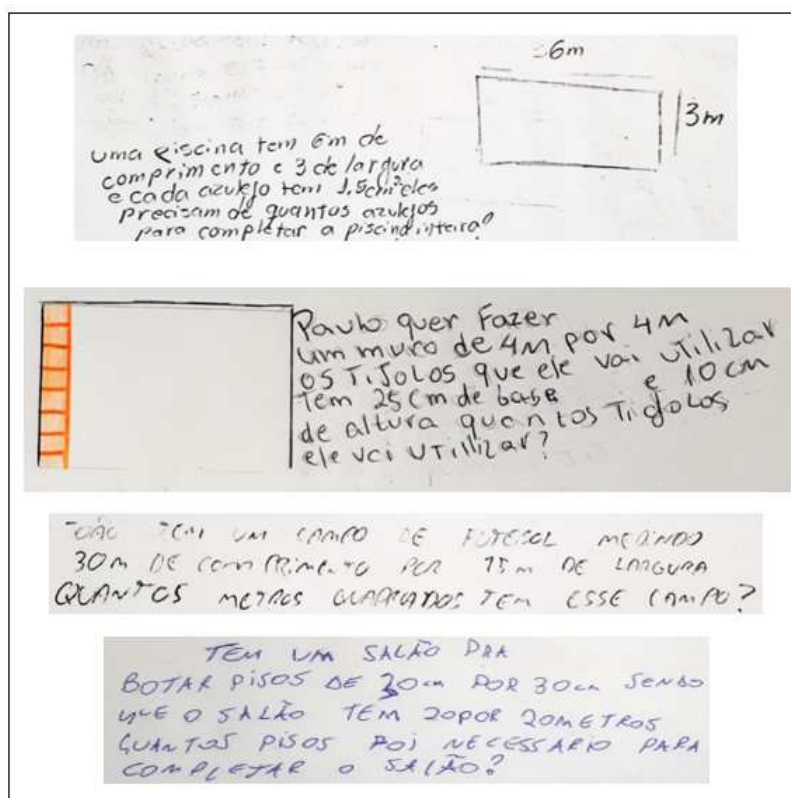 6m
3m
uma piscina tem 6m de
comprimento e 3 de largura
e cada azulejo tem 1,5cm² eles
precisam de quantos azulejos
para completar a piscina inteira?
Paulo quer Fazer
um muro de 4M por 4M
os TiJoLos que ele vai uTiLizar
Tem 25 Cm de base e 10 cm
de altura quantos Tijolos
ele vai uTillizar?
JOÃO TEM UM CAMPO DE FUTEBOL MEDINDO
30m DE COMPRIMENTO POR 15m DE LARGURA
QUANTOS METROS QUADRADOS TEM ESSE CAMPO?
TEM UM SALÃO PRA
BOTAR PISOS DE cm POR 30cm SENDO
QUE O SALÃO TEM 20 POR 20 METROS
QUANTOS PISOS FOI NECESSARIO PARA
COMPLETAR O SALÃO?